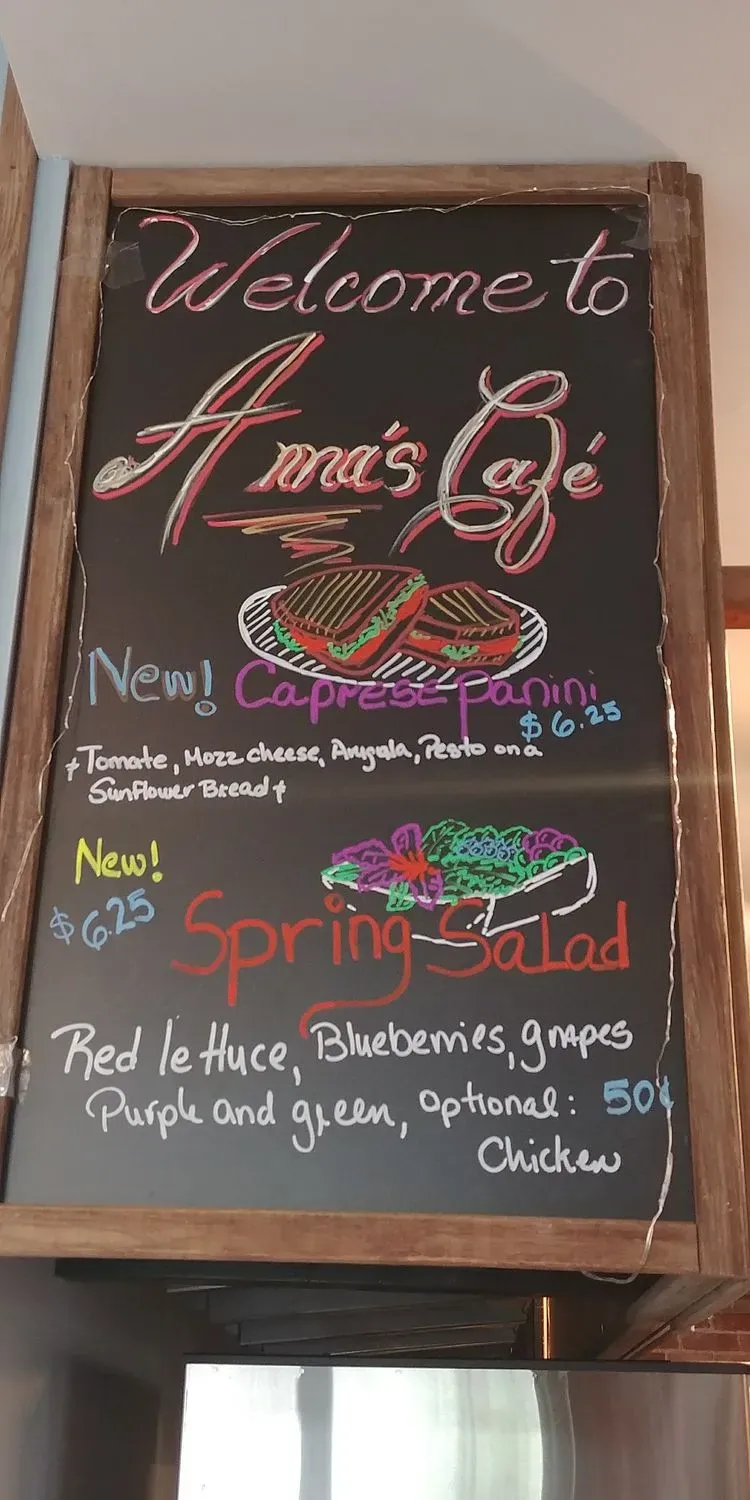 Welcome to
Ama's Café
New! Caprese Panini
$6.25
Tomate, Mozz cheese, Arugala, Pesto on a
Sunflower Bread
New!
$6.25
Spring Salad
Red lettuce, Blueberries, grapes
Purple and green, optional: 50¢
Chicken